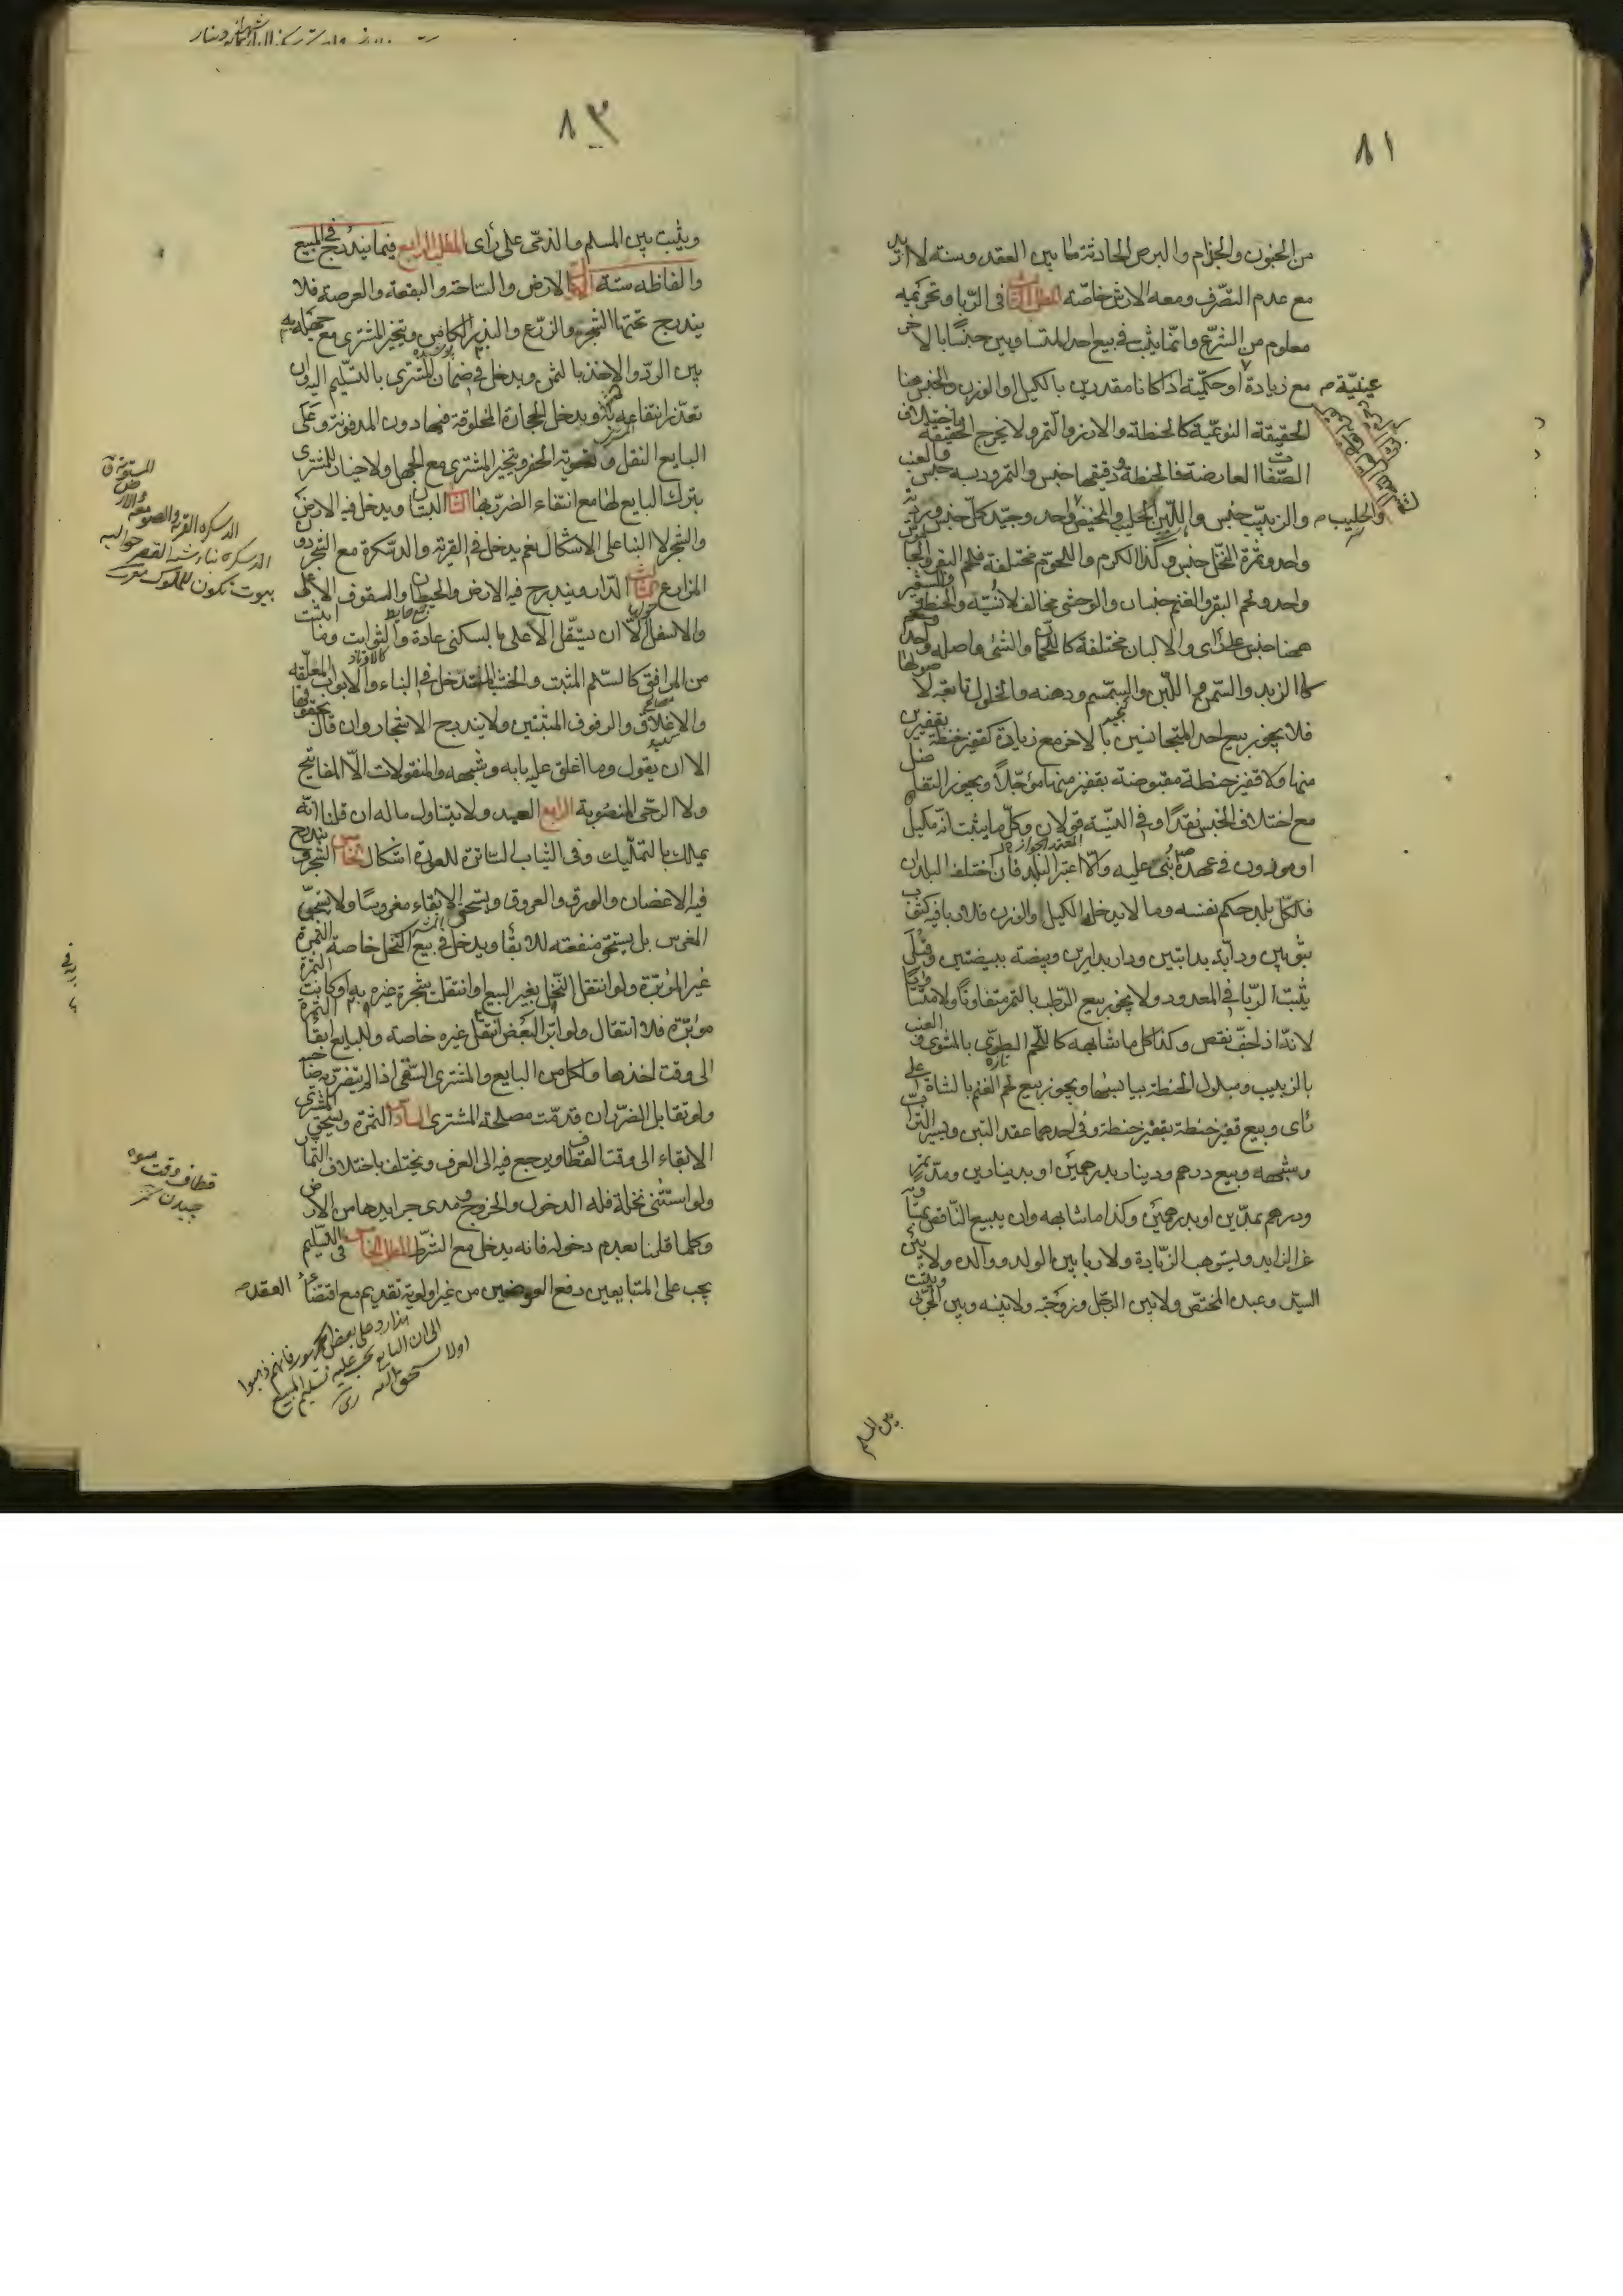 ٨١
من الجنون والجذام والبرص الحادثة ما بين العقد وسنة لا ازيد
مع عدم التصرف ومعه الارش خاصة المطلب الثالث فى الربا وتحريمه
معلوم من الشرع وانما يثبت فى بيع احد المتساويين جنسا بالاخر
مع زيادة عينية او حكمية اذا كانا مقدرين بالكيل والوزن والجنس هنا
الحقيقة النوعية كالحنطة والارز والتمر ولا يخرج الحقيقة باختلاف
الصفات العارضة فالحنطة ودقيقها جنس والتمر ودبسه جنس والعنب
والزبيب جنس واللبن والحليب والمخيض واحد وجيد كل جنس ورديه
واحد وثمرة النخل جنس وكذا الكرم واللحوم مختلفة فلحم البقر والجاموس
واحد ولحم البقر والغنم جنسان والوحشى مخالف لانسيه والحنطة والشعير
ههنا جنس على راى والالبان مختلفة كاللحمان والشئ واصله واحد
كالزبد والسمن واللبن والسمسم ودهنه والخلول تابعة لاصولها
فلا يجوز بيع احد المتجانسين بالاخر مع زيادة كقفيز حنطة بقفيزين
منها ولا قفيز حنطة مقبوضة بقفيز منها مؤجلا ويجوز التفاضل
مع اختلاف الجنس نقدا وفى النسية قولان وكل ما يثبت انه مكيل
او موزون فى عهده بنى عليه والا اعتبر البلد فان اختلف البلدان
فلكل بلد حكم نفسه وما لا يدخله الكيل والوزن فلا ربا فيه كثوب
بثوبين ودابة بدابتين ودار بدارين وبيضة ببيضتين وقيل
يثبت الربا فى المعدود ولا يجوز بيع الرطب بالتمر متفاوتا ولا متساويا
لانه اذا جف نقص وكذا كل ما شابهه كاللحم الطرى بالمشوى والعنب
بالزبيب ومبلول الحنطة بيابسها ويجوز بيع لحم الغنم بالشاة على
راى وبيع قفيز حنطة بقفيز حنطة وفى احدهما عقد التبن ويسير التراب
وشبهه وبيع درهم ودينار بدرهمين او بدينارين ومد تمر
ودرهم بمدين او بدرهمين وكذا ما شابهه وان يبيع الناقص بمساويه
من الزايد ويستوهب الزيادة ولا ربا بين الولد ووالده ولا بين
السيد وعبده المختص ولا بين الرجل وزوجته ولا بينه وبين الحربى
بين المسلم
٨٣
ويثبت بين المسلم والذمى على راى المطلب الرابع فيما يندرج فى المبيع
والفاظه ستة الاول الارض والساحة والبقعة والعرصة فلا
يندرج تحتها الشجر والزرع والبذر الكامن ويتخير المشترى مع جهله به
بين الرد والاخذ بالثمن ويدخل فى ضمان المشترى بالتسليم اليه وان
تعذر انتفاعه به ويدخل الحجارة المخلوقة فيها دون المدفونة وعلى
البايع النقل وتسوية الحفر ويتخير المشترى مع الجهل ولا خيار للمشترى
بترك البايع لها مع انتفاء الضرر بها الثانى البستان ويدخل فيه الارض
والشجر لا البناء على الاشكال نعم يدخل فى القرية والدسكرة مع الشجر دون
المزارع الثالث الدار ويندرج فيه الارض والحيطان والسقوف الاعلى
والاسفل الا ان يستقل الاعلى بالسكنى عادة والثوابت وما اثبت
من المرافق كالسلم المثبت والخشب المتدخل فى البناء والابواب المعلقة
والاغلاق والرفوف المثبتين ولا يندرج الاشجار وان قال بحقوقها
الا ان يقول وما اغلق عليه بابه وشبهه والمنقولات الا المفاتيح
ولا الرحى المنصوبة الرابع العبد ولا يتناول ماله ان قلنا انه
يملك بالتمليك وفى الثياب الساترة للعورة اشكال الخامس الشجر ويندرج
فيه الاغصان والورق والعروق ويستحق الابقاء مغروسا ولا يستحق
المغرس بل يستحق منفعته للابقاء ويدخل فى بيع النخل خاصة الثمرة
غير المؤبرة ولو انتقل النخل بغير البيع او انتقلت شجرة غيره به او كانت الثمرة
مؤبرة فلا انتقال ولو ابر البعض انتقل غيره خاصة وللبايع ابقاء الثمرة
الى وقت اخذها ولكل من البايع والمشترى السقى اذا لم يتضرر صاحبه
ولو تقابل الضرران قدمت مصلحة المشترى السادس الثمرة ويستحق المشترى
الابقاء الى وقت القطاف ويرجع فيه الى العرف ويختلف باختلاف الثمار
ولو استثنى نخلة فله الدخول والخروج ومدى جرايدها من الارض
وكلما قلنا بعدم دخوله فانه يدخل مع الشرط المطلب الخامس فى التسليم
يجب على المتبايعين دفع العوضين من غير اولوية تقديم مع اقتضاء العقد
هذا رد على بعض الجمهور فانهم ذهبوا
الى ان البايع يجب عليه تسليم المبيع
اولا
الدسكرة القرية والصومعة والارض المستوية
الدسكرة بناء شبه القصر حواليه
بيوت تكون للملوك
قطاف وقت ميوه
چيدن